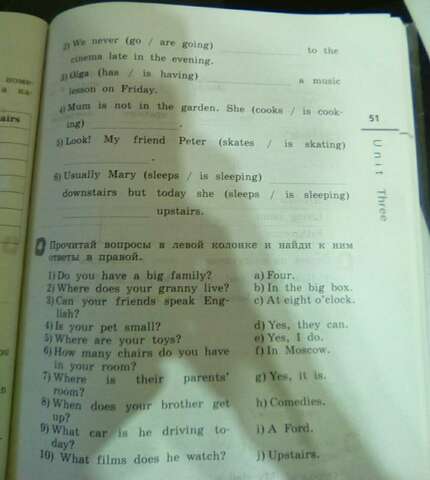 2) We never (go / are going) to the
cinema late in the evening.
3) Olga (has / is having) a music
lesson on Friday.
4) Mum is not in the garden. She (cooks / is cook-
ing) .
5) Look! My friend Peter (skates / is skating)
.
6) Usually Mary (sleeps / is sleeping)
downstairs but today she (sleeps / is sleeping)
upstairs.
Прочитай вопросы в левой колонке и найди к ним
ответы в правой.
1) Do you have a big family? a) Four.
2) Where does your granny live? b) In the big box.
3) Can your friends speak Eng- c) At eight o'clock.
lish?
4) Is your pet small? d) Yes, they can.
5) Where are your toys? e) Yes, I do.
6) How many chairs do you have f) In Moscow.
in your room?
7) Where is their parents' g) Yes, it is.
room?
8) When does your brother get h) Comedies.
up?
9) What car is he driving to- i) A Ford.
day?
10) What films does he watch? j) Upstairs.
51
Unit Three